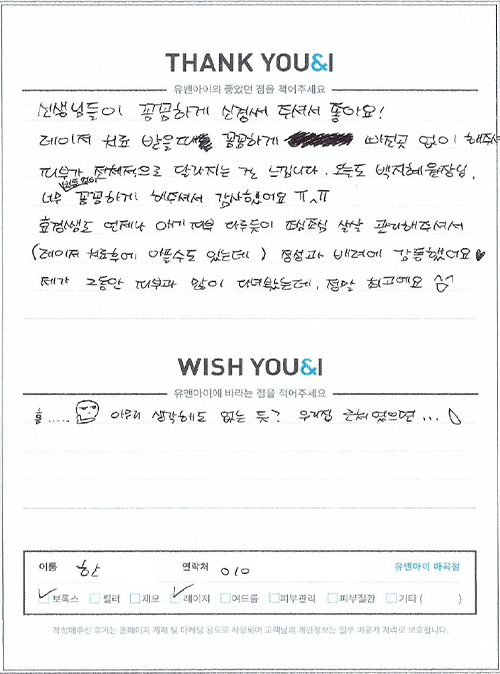 THANK YOU&I
유앤아이의 좋았던 점을 적어주세요
선생님들이 꼼꼼하게 신경써 주셔서 좋아요!
레이저 치료 받을때 꼼꼼하게 빠진곳 없이 해주셔
피부가 전체적으로 달라지는 걸 느낍니다. 오늘도 백지혜 원장님,
너무 꼼꼼하게 해주셔서 감사했어요 ㅠ^ㅠ
효정쌤도 언제나 아기피부 다루듯이 조심조심 살살 관리해주셔서
(레이저 치료후에 아플수도 있는데) 정성과 배려에 감동했어요♥
제가 그동안 피부과 많이 다녀봤는데, 정말 최고예요 ^^
WISH YOU&I
유앤아이에 바라는 점을 적어주세요
흠..... 아무리 생각해도 없는 듯? 우리집 근처였으면...
이름 한 연락처 010 유앤아이 마곡점
보톡스 필러 제모 레이저 여드름 피부관리 피부질환 기타 ( )
작성해주신 후기는 홈페이지 게재 및 마케팅 용도로 사용되며 고객님의 개인정보는 일부 비공개 처리로 보호됩니다.